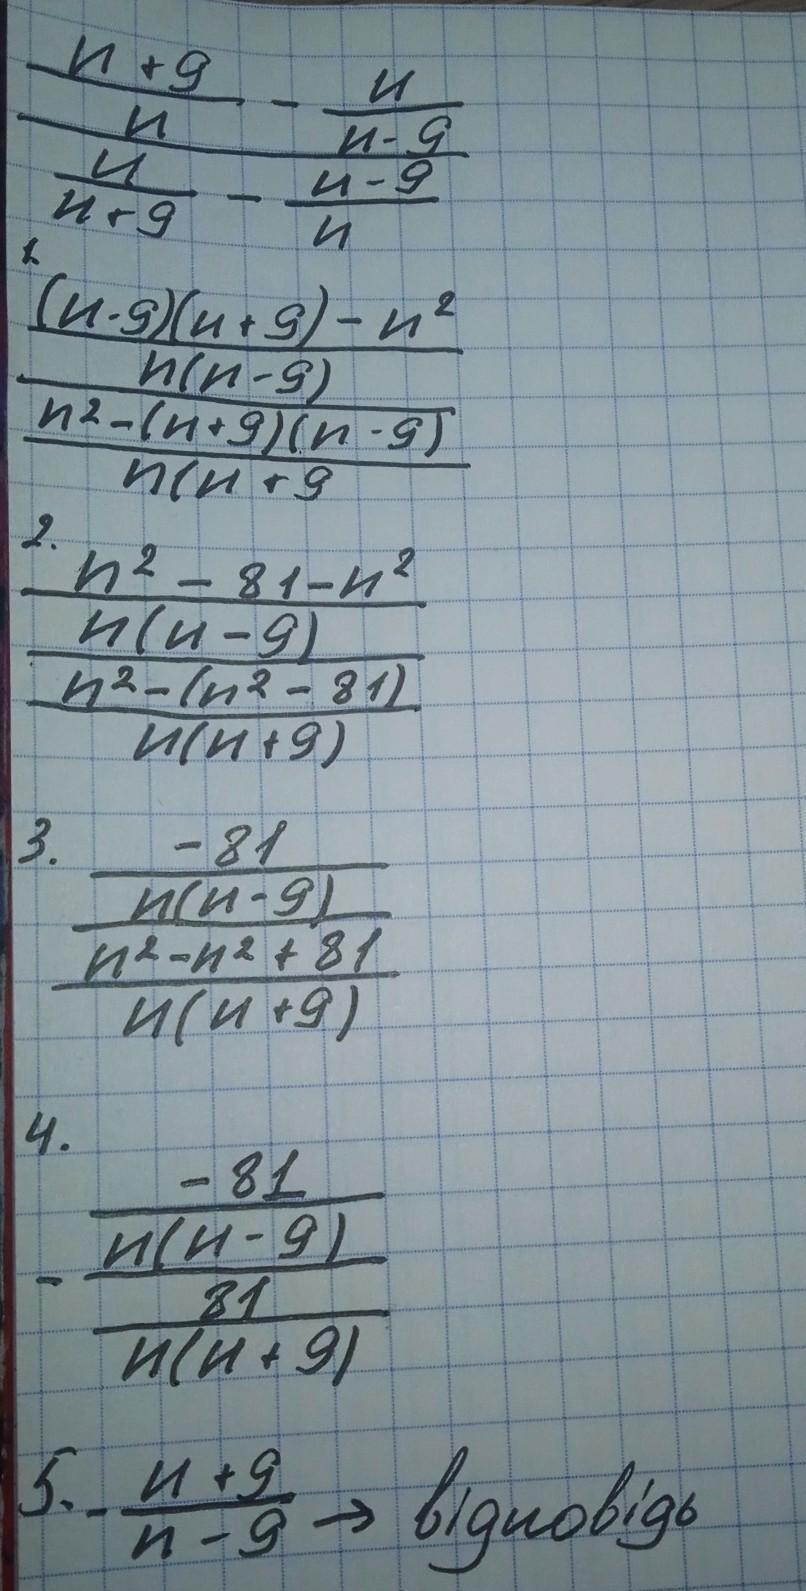 n + 9
n
- n
n - 9
n
n + 9
- n - 9
n
1.
(n - 9)(n + 9) - n²
n(n - 9)
n² - (n + 9)(n - 9)
n(n + 9
2.
n² - 81 - n²
n(n - 9)
n² - (n² - 81)
n(n + 9)
3.
-81
n(n - 9)
n² - n² + 81
n(n + 9)
4.
-81
n(n - 9)
-
81
n(n + 9)
5. - n + 9
n - 9
→ відповідь